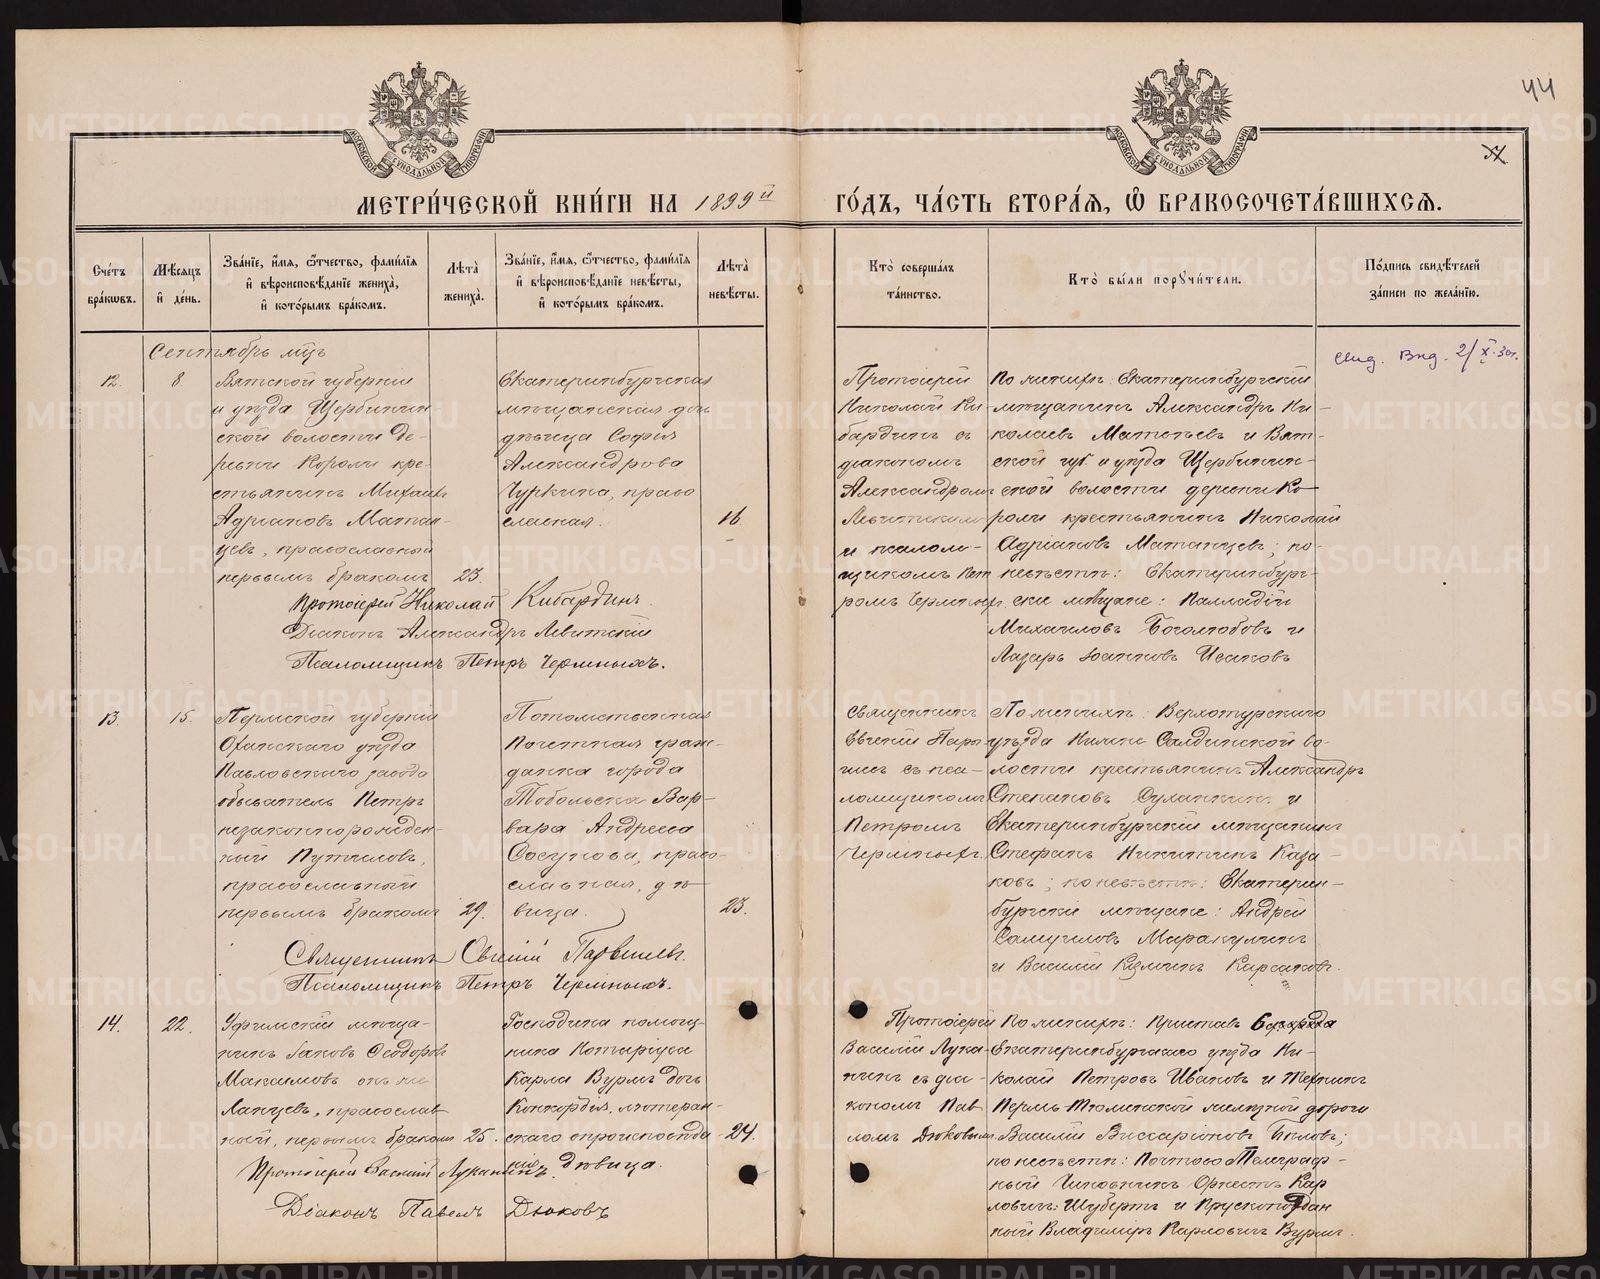 44
МЕТРИ́ЧЕСКОЙ КНИ́ГИ НА 1899й ГО́ДЪ, ЧА́СТЬ ВТОРА́Я, Ѡ БРАКОСОЧЕТА́ВШИХСЯ.
Сче́тъ бра́ковъ.
Мѣ́сяцъ и҆ день.
Зва́нїе, и҆́мя, ѻ҆́тчество, фами́лїя
и҆ вѣроисповѣ́данїе жениха̀,
и҆ кото́рымъ бра́комъ.
Лѣта̀ жениха̀.
Зва́нїе, и҆́мя, ѻ҆́тчество, фами́лїя
и҆ вѣроисповѣ́данїе невѣ́сты,
и҆ кото́рымъ бра́комъ.
Лѣта̀ невѣ́сты.
Кто̀ соверша́лъ
та́инство.
Кто̀ бы́ли порꙋчи́тели.
По́дпись свидѣ́телей
за́писи по жела́нїю.
Сентябрь мцъ
12.
8.
Вятской губернiи
и уѣзда Щербинин
ской волости де-
ревни Короли кре-
стьянинъ Михаилъ
Адриановъ Матан-
цевъ, православный
первымъ бракомъ
23.
Екатеринбургская
мѣщанская дочь
дѣвица София
Александрова
Чуркина, право
славная.
16.
Протоiерей
Николай Ки-
бардинъ съ
дiакономъ
Александромъ
Левитскимъ
и псалом-
щикомъ Пет
ромъ Черемных
По женихѣ: Екатеринбургскiй
мѣщанинъ Александръ Ни-
колаевъ Матвѣевъ и Вят-
ской губ. и уѣзда Щербинин-
ской волости деревни Ко-
роли крестьянинъ Николай
Адрiановъ Матанцевъ; по
невѣстѣ: Екатеринбург-
скiе мѣщане: Палладiй
Михаиловъ Боголюбовъ и
Лазарь Iоанновъ Исаковъ
Свид. выд. 2/X-30г.
Протоiерей Николай Кибардинъ.
Дiаконъ Александръ Левитскiй
Псаломщикъ Петръ Черемныхъ.
13.
15.
Пермской губернiи
Оханскаго уѣзда
Павловскаго завода
обыватель Петръ
незаконнорожден-
ный Путиловъ,
православный
первымъ бракомъ
29.
Потомственная
Почетная граж-
данка города
Тобольска Вар-
вара Андреева
Сосунова, право-
славная, дѣ-
вица.
23.
Священникъ
Евгенiй Пары-
шевъ съ пса-
ломщикомъ
Петромъ
Черемных.
По женихѣ: Верхотурскаго
уѣзда Нижне Салдинской во-
лости крестьянинъ Александръ
Степановъ Суханкинъ и
Екатеринбургскiй мѣщанинъ
Стефанъ Никитинъ Каза-
ковъ; по невѣстѣ: Екатерин-
бургскiе мѣщане: Андрей
Самуиловъ Маракулинъ
и Василiй Козминъ Карсаковъ.
Священникъ Евгенiй
Псаломщикъ Петръ Черемныхъ.
14.
22.
Уфимскiй мѣща-
нинъ Iаковъ Феодоровъ
Максимовъ онъ же
Ланцевъ, православ
ный, первымъ бракомъ
25.
Господина помощ-
ника Нотарiуса
Карла Вурм дочь
Конкордiя, лютеран-
скаго вѣроисповѣда-
нiя, дѣвица.
24.
Протоiерей
Василiй Лука-
нинъ съ дiа-
кономъ Пав
ломъ Дюковымъ.
По женихѣ: Приставъ 6
Екатеринбургскаго уѣзда Ни-
колай Петровъ Ивановъ и Техникъ
Пермь-Тюменской желѣзной дороги
Василiй Виссарiоновъ Бѣловъ;
по невѣстѣ: Почтово Телеграф-
ный Чиновникъ Орнестъ Кар
ловичъ Шубертъ и Прусскоподдан
ный Владимiръ Карловичъ Вурм.
Протоiерей Василiй Луканинъ.
Дiаконъ Павелъ Дюковъ
METRIKI.GASO-URAL.RU